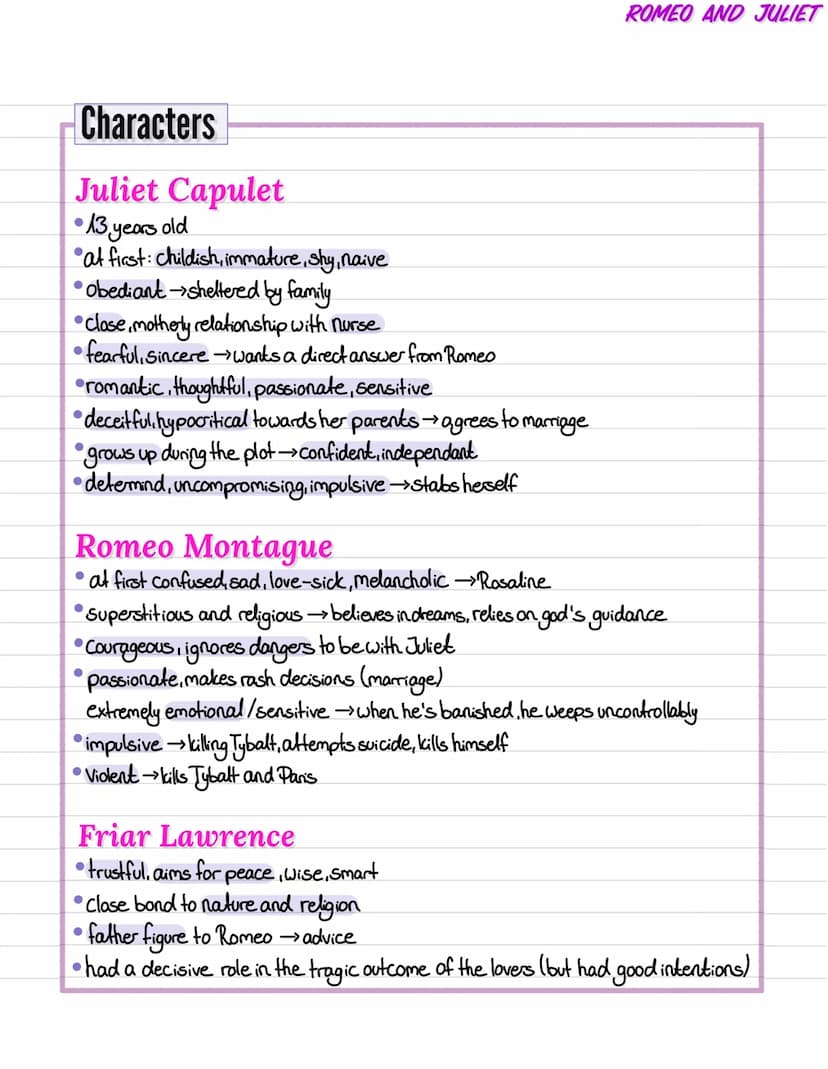 ROMEO AND JULIET
Characters
Juliet Capulet
•13 years old
•at first: childish, immature, shy, naive
•obediant →sheltered by family
•close, motherly relationship with nurse
•fearful, sincere →wants a direct answer from Romeo
•romantic, thoughtful, passionate, sensitive
•deceitful, hypocritical towards her parents → agrees to marriage
•grows up during the plot → confident, independant
•determind, uncompromising, impulsive → stabs herself
Romeo Montague
•at first confused, sad, love-sick, melancholic → Rosaline
•superstitious and religious → believes in dreams, relies on god's guidance
•courageous, ignores dangers to be with Juliet
•passionate, makes rash decisions (marriage)
extremely emotional/sensitive → when he's banished, he weeps uncontrollably
•impulsive → killing Tybalt, attempts suicide, kills himself
•violent → kills Tybalt and Paris
Friar Lawrence
•trustful, aims for peace, wise, smart
•close bond to nature and religion
•father figure to Romeo → advice
•had a decisive role in the tragic outcome of the lovers (but had good intentions)